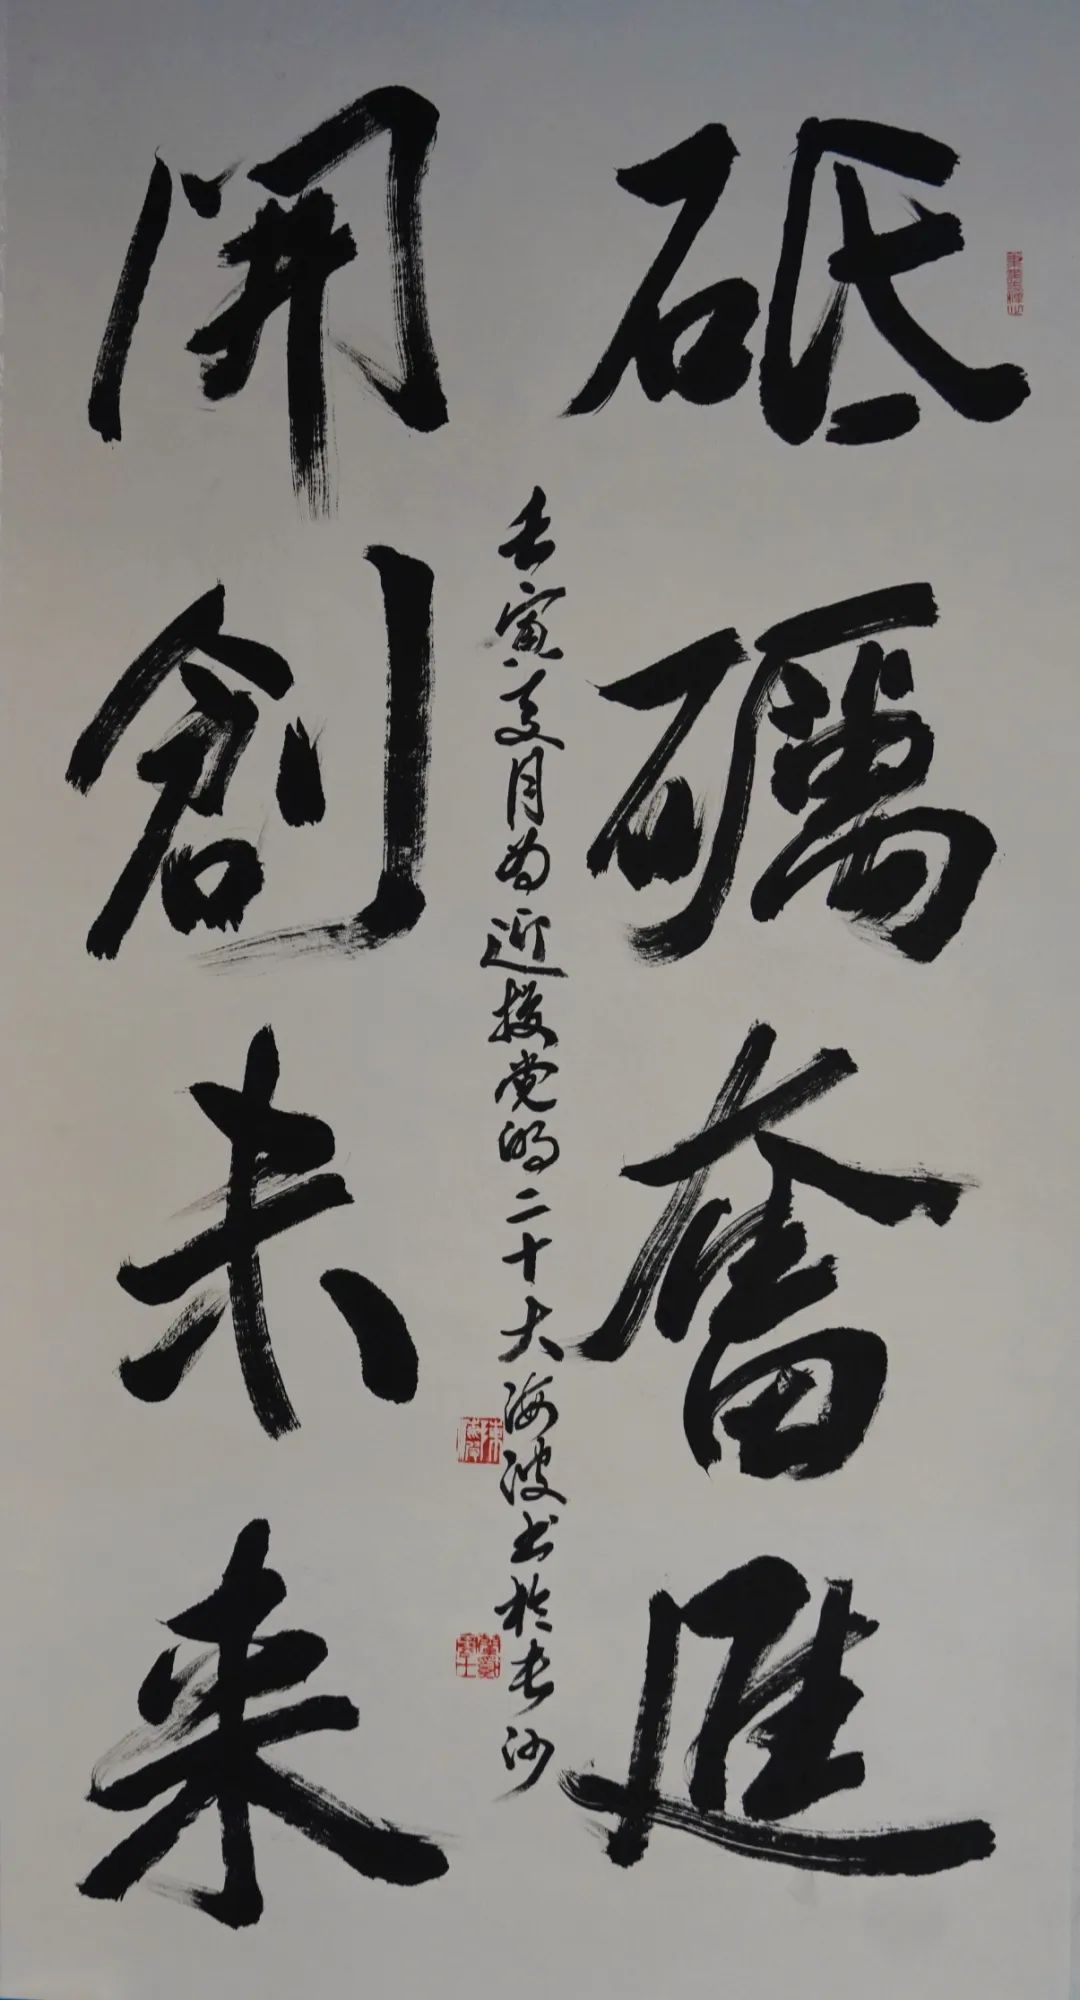 砥礪奮進
開創未来
壬寅夏月为迎接党的二十大海波书於长沙